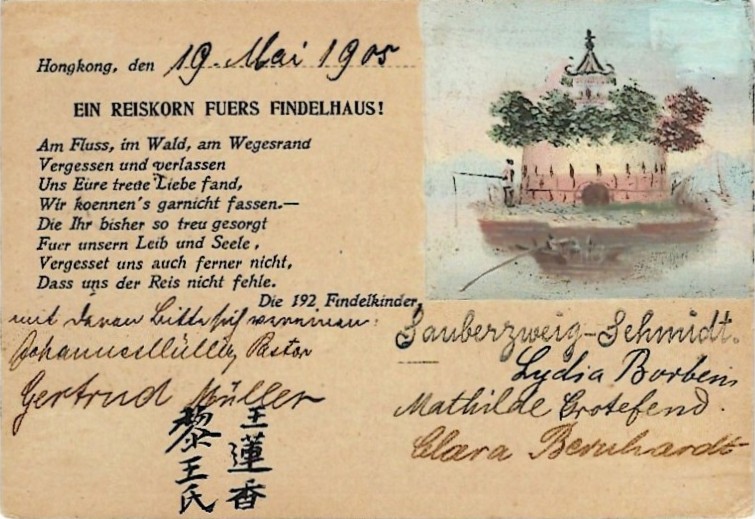 Hongkong, den 19. Mai 1905
EIN REISKORN FUERS FINDELHAUS!
Am Fluss, im Wald, am Wegesrand
Vergessen und verlassen
Uns Eure treue Liebe fand,
Wir koennen's garnicht fassen.—
Die Ihr bisher so treu gesorgt
Fuer unsern Leib und Seele,
Vergesset uns auch ferner nicht,
Dass uns der Reis nicht fehle.
Die 192 Findelkinder,
mit deren Bitte sich vereinen:
Johannes Müller, Pastor
Gertrud Müller
王蓮香
黎王氏
Sauberzweig-Schmidt.
Lydia Borbein
Mathilde Grotefend.
Clara Bernhardt